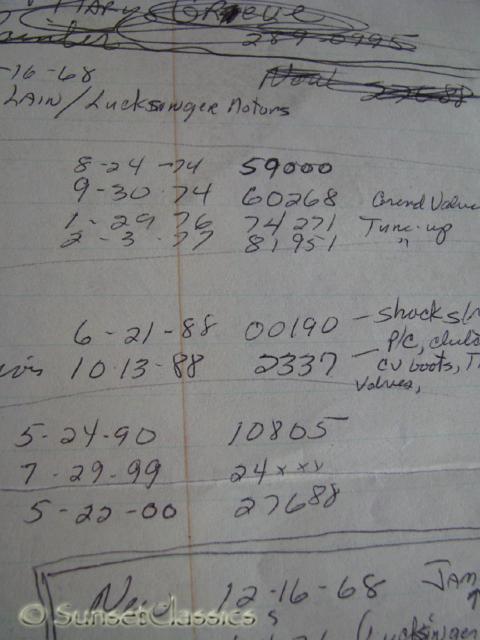 MARY GREUE
289-0995
-16-68 Now 27688
LAIN / Lucksinger Motors
8-24-74 59000
9-30-74 60268 Grind Valve
1-29-76 74271 Tune-up
2-3-77 81951 "
6-21-88 00190 - shocks
10-13-88 2337 - P/C, CV boots, Valves,
5-24-90 10805
7-29-99 24xxx
5-22-00 27688
New 12-16-68 JAM
© SunsetClassics